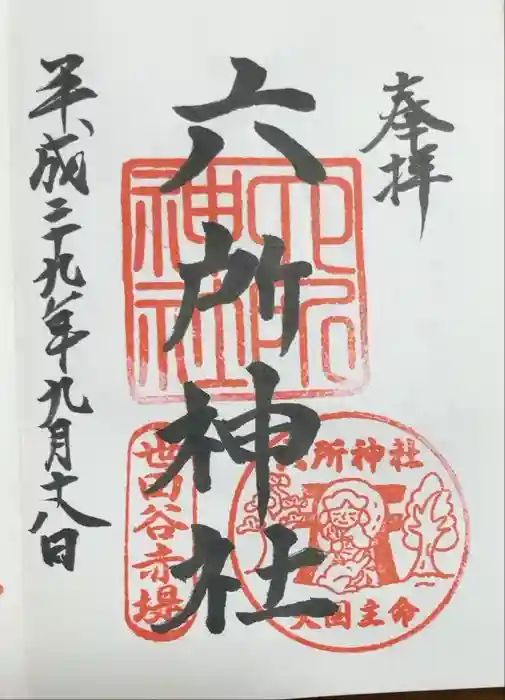 奉拝
六所神社
平成二十九年九月十八日
六所神社
世田谷赤堤
六所神社
大国主命